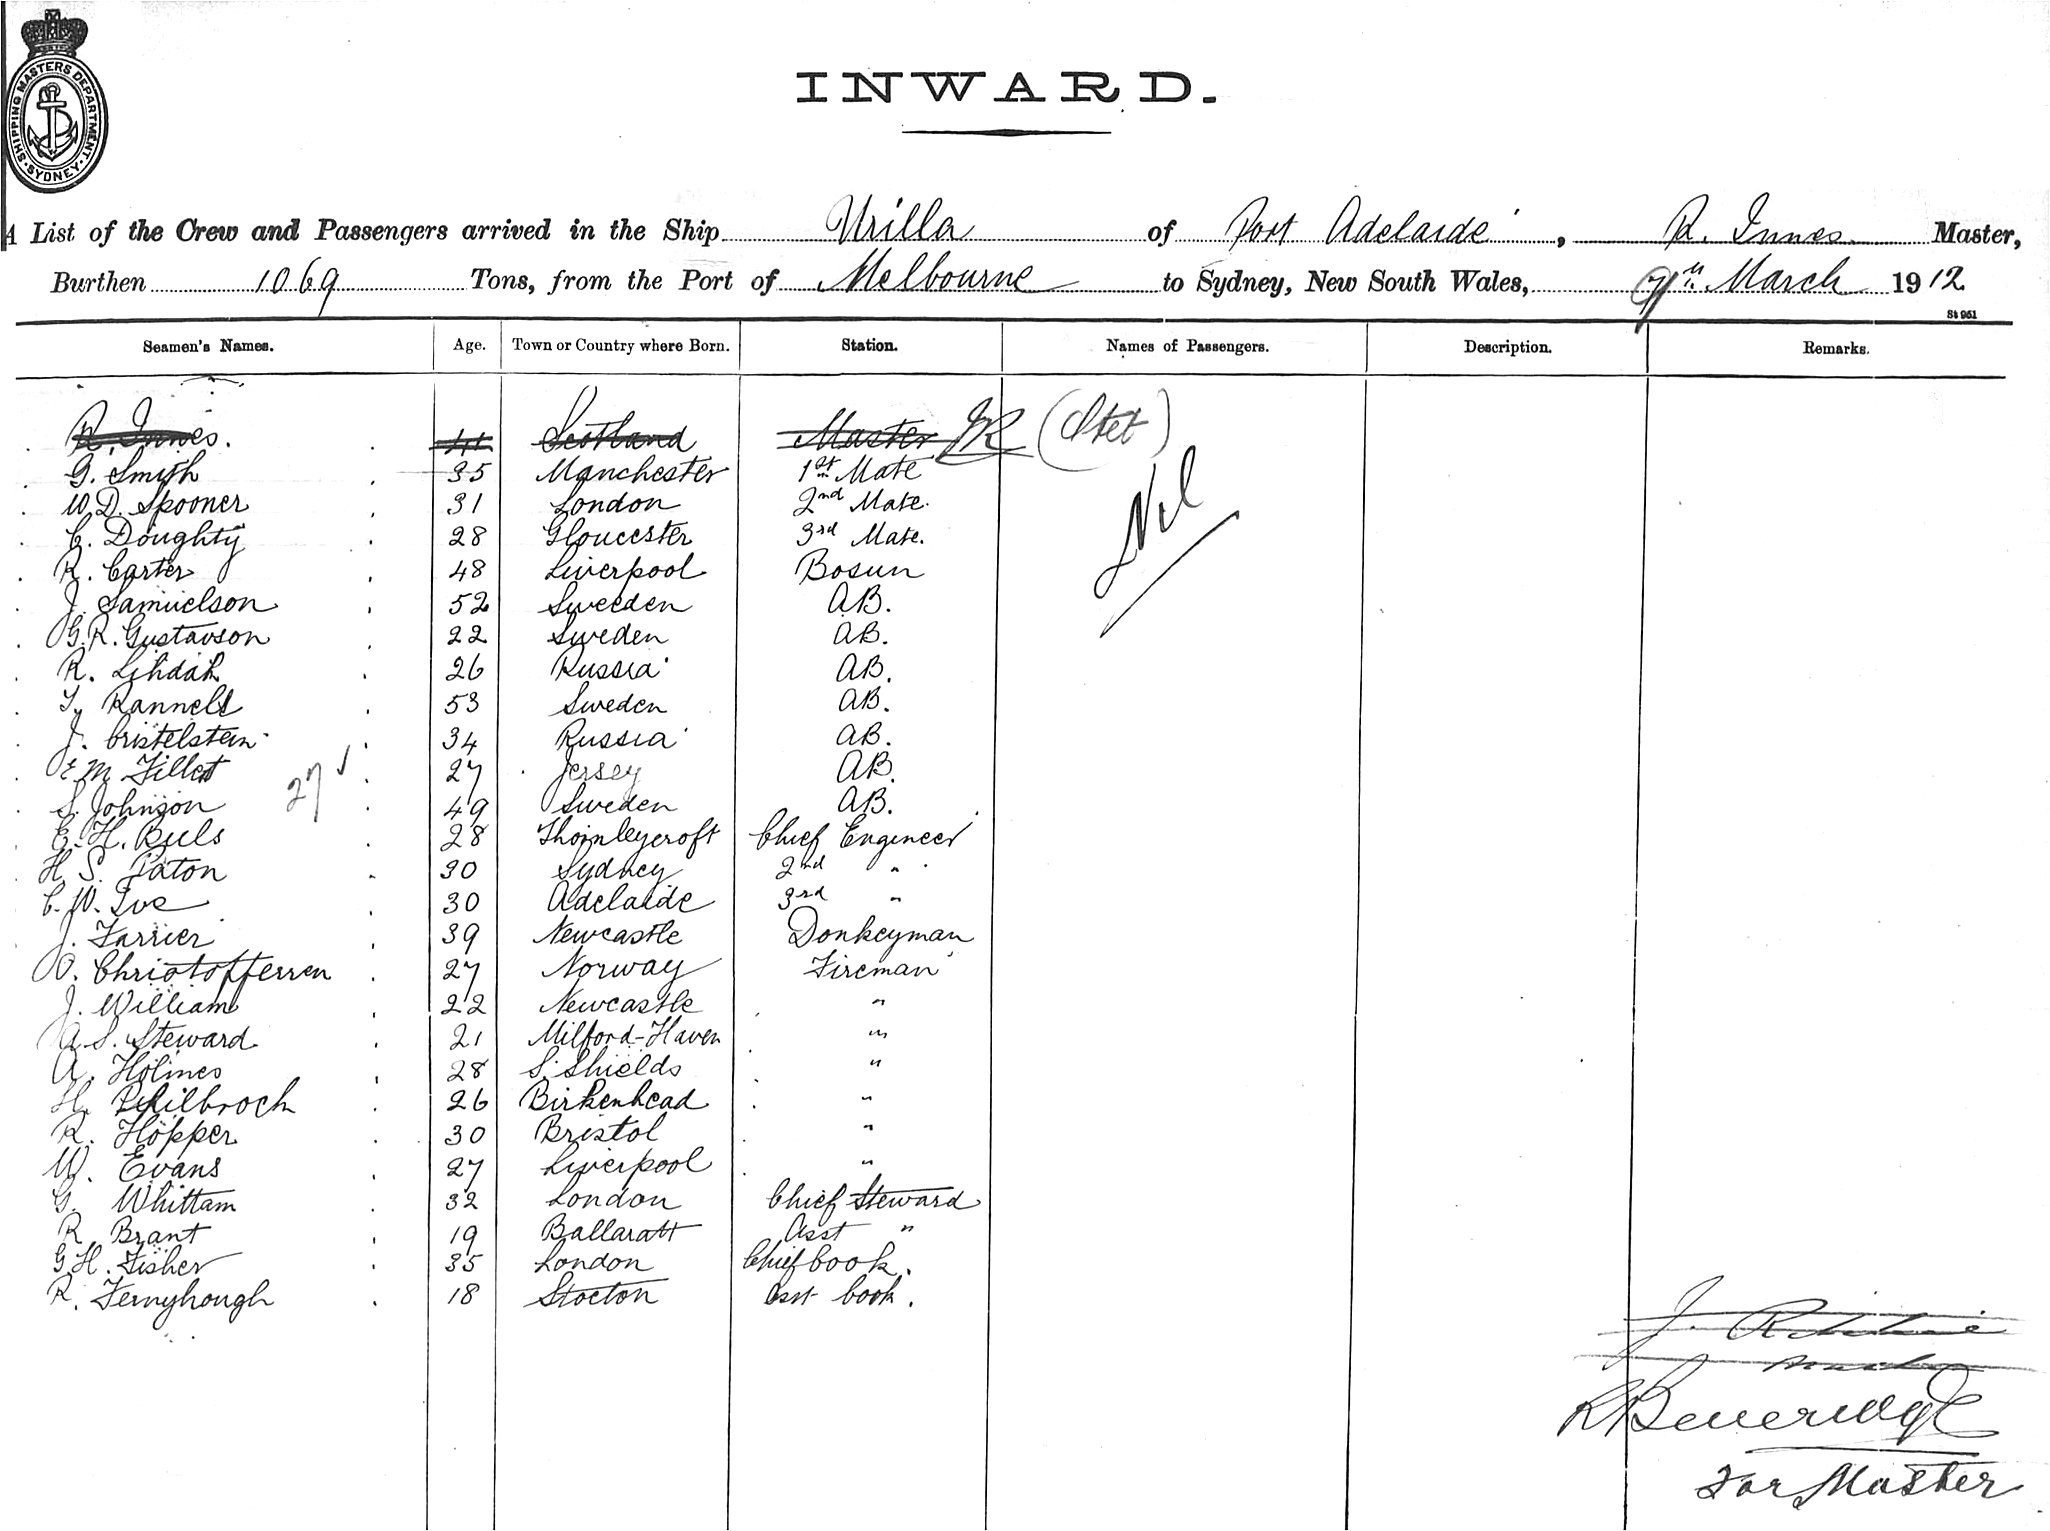 SHIPPING MASTERS DEPARTMENT · SYDNEY ·
INWARD.
A List of the Crew and Passengers arrived in the Ship Urilla of Port Adelaide, R. Innes Master,
Burthen 1069 Tons, from the Port of Melbourne to Sydney, New South Wales, 7th March 1912
St 951
Seamen's Names. Age. Town or Country where Born. Station. Names of Passengers. Description. Remarks.
R. Innes. Scotland Master JR (Stet)
G. Smith 35 Manchester 1st Mate
W.D. Spooner 31 London 2nd Mate.
C. Doughty 28 Gloucester 3rd Mate.
Nil
R. Carter 48 Liverpool Bosun
J. Samuelson 52 Sweeden AB.
G.R. Gustavson 22 Sweden AB.
R. Lindah 26 Russia AB.
Rannels 53 Sweden AB.
J. Cristelstein 34 Russia AB.
E.M. Fillet 27 Jersey AB.
27 ✓
S. Johnson 49 Sweden AB.
E.H. Buls 28 Thornleycroft Chief Engineer
H. S. Paton 30 Sydney 2nd "
C. W. Ive 30 Adelaide 3rd "
J. Farrier 39 Newcastle Donkeyman
O. Christofferren 27 Norway Fireman
J. William 22 Newcastle "
A.S. Steward 21 Milford-Haven "
A. Holmes 28 S. Shields "
H. Philbroch 26 Birkenhead "
R. Hopper 30 Bristol "
W. Evans 27 Liverpool "
G. Whittam 32 London Chief Steward
R. Brant 19 Ballaratt Asst "
G.H. Fisher 35 London Chief Cook.
R. Fernyhough 18 Stocton Asst Cook.
J. Ritchie
R Beveridge
For Master